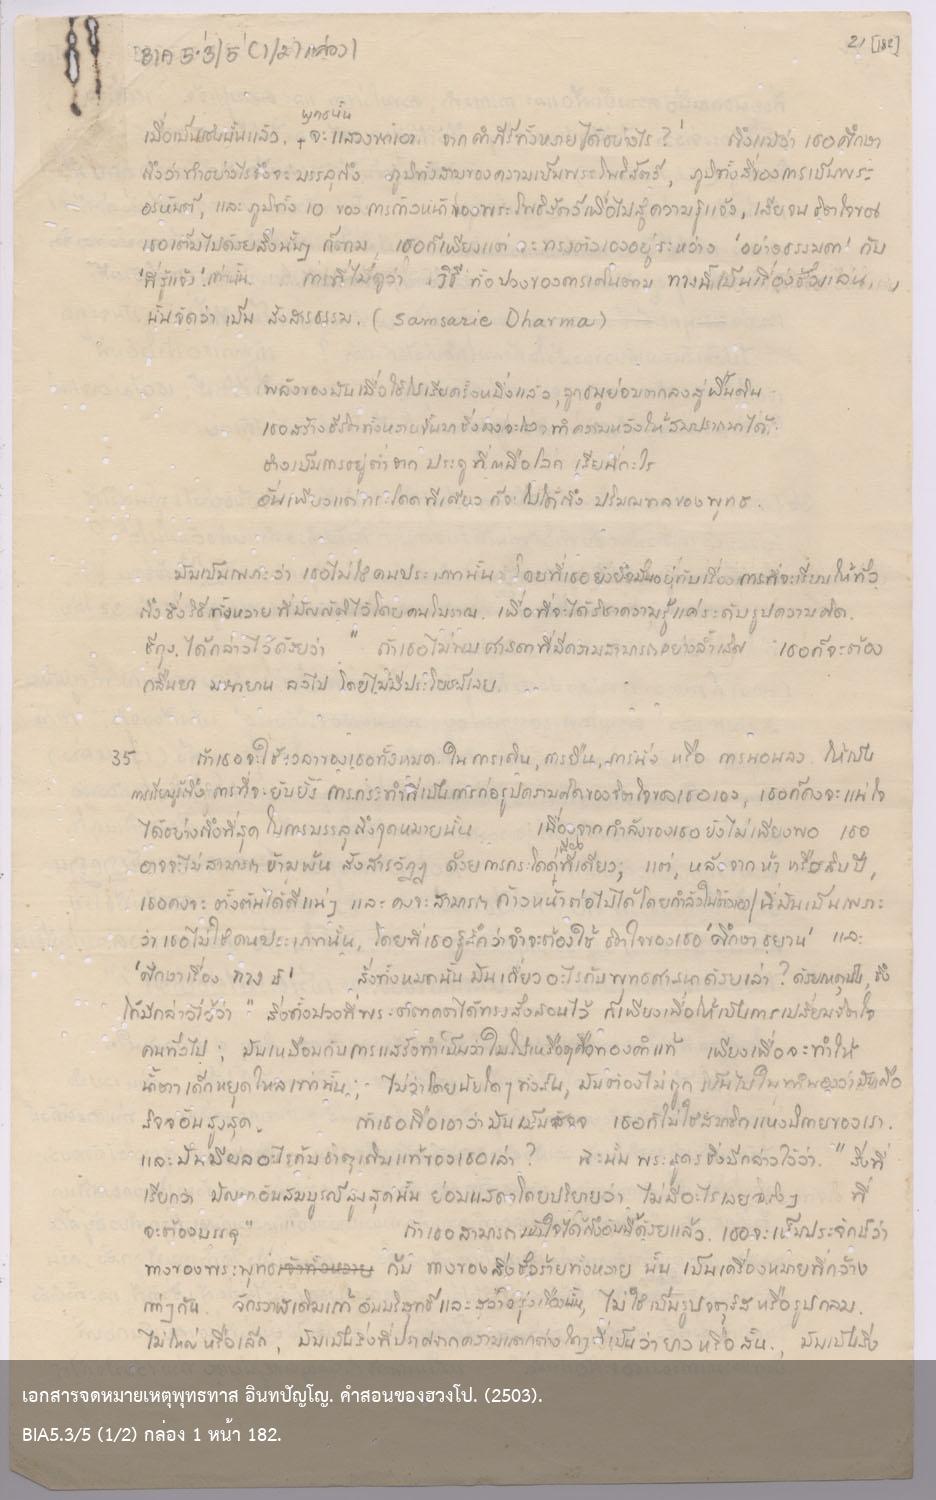 BIA 5.3/5 (1/2) กล่อง 1
21 [182]
พุทธนั้น
เมื่อเป็นเช่นนั้นแล้ว. + จะแสวงหาเอา จากคัมภีร์ทั้งหลายได้อย่างไร? ถึงแม้ว่า เธอศึกษา
ถึงว่าทำอย่างไรจึงจะบรรลุถึง ภูมิทั้งสามของความเป็นพระโพธิสัตว์, ภูมิทั้งสี่ของการเป็นพระ
อรหันต์, และภูมิทั้ง 10 ของการก้าวหน้าของพระโพธิสัตว์เพื่อไปสู่ความรู้แจ้ง, เสียจนจิตใจของ
เธอเต็มไปด้วยสิ่งนั้นๆ ก็ตาม, เธอก็เพียงแต่ จะทรงตัวเองอยู่ระหว่าง 'อย่างธรรมดา' กับ
'ที่รู้แจ้ง' เท่านั้น. การที่ไม่ดูว่า วิธี ทั้งปวงของการเดินตาม ทางนี้เป็นเรื่องชั่วแล่น,
นั้นจัดว่าเป็น สังสารธรรม. (Samsaric Dharma)
พลังของมันเมื่อใช้ไปเสียครั้งหนึ่งแล้ว, ลูกธนูย่อมตกลงสู่พื้นดิน
เธอสร้างชีวิตทั้งหลายขึ้นมาซึ่งคงจะไม่ทำความหวังให้สมปรารถนาได้.
ช่างเป็นการอยู่ต่ำจาก ประตูที่เหนือโลก เสียนี่กะไร
อันเพียงแต่กระโดดทีเดียว ก็จะไปได้ถึง ปริมณฑลของพุทธ.
มันเป็นเพราะว่า เธอไม่ใช่คนประเภทนั้น โดยที่เธอยังยึดมั่นอยู่กับเรื่องการที่จะเรียนให้ทั่ว
ถึงซึ่งวิธีทั้งหลายที่บัญญัติไว้โดยคนโบราณ. เพื่อที่จะได้วิชาความรู้แค่ระดับรูปความคิด.
ชีกุง.ได้กล่าวไว้ด้วยว่า " ถ้าเธอไม่พบศาสดาที่มีความสามารถอย่างล้ำเลิศ เธอก็จะต้อง
กลืนยา มหายาน ลงไป โดยไม่มีประโยชน์เลย.
35 ถ้าเธอจะใช้เวลาของเธอทั้งหมด. ในการเดิน, การยืน, การนั่ง หรือ การนอนลง. ให้เป็น
การเรียนรู้ถึง การที่จะยับยั้ง การกระทำที่เป็นการก่อรูปความคิดของจิตใจของเธอเอง, เธอก็คงจะแน่ใจ
ได้อย่างถึงที่สุด ในการบรรลุถึงจุดหมายนั้น เนื่องจากกำลังของเธอยังไม่เพียงพอ เธอ
อาจจะไม่สามารถ ข้ามพ้น สังสารวัฏฏ์ ด้วยการกระโดดทีเดียว; แต่, หลังจากห้า หรือสิบปี,
เธอคงจะ ตั้งต้นได้ดีแน่ๆ และ คงจะสามารถ ก้าวหน้าต่อไปได้โดยกำลังในตัวเอง/นี่มันเป็นเพราะ
ว่าเธอไม่ใช่คนประเภทนั้น, โดยที่เธอรู้สึกว่าจำจะต้องใช้ จิตใจของเธอ 'ศึกษาธยาน' และ
'ศึกษาเรื่อง ทาง นี้' สิ่งทั้งหมดนั้น มันเกี่ยวอะไรกับพุทธศาสนาด้วยเล่า? ด้วยเหตุนี้, จึง
ได้มีกล่าวไว้ว่า " สิ่งทั้งปวงที่พระตถาคตได้ทรงสั่งสอนไว้ ก็เพียงเพื่อให้เป็นการเปลี่ยนจิตใจ
คนทั่วไป; มันเหมือนกับการแสร้งทำเป็นว่าใบไม้เหลืองคือทองคำแท้ เพียงเพื่อจะทำให้
น้ำตาเด็กหยุดไหลเท่านั้น; ไม่ว่าโดยนัยใดๆทั้งสิ้น, มันต้องไม่ถูก
จริงอันสูงสุด. ถ้าเธอถือเอาว่ามันเป็นสัจจ เธอก็ไม่ใช่สมาชิกแห่งนิกายของเรา.
และมันมีผลอะไรกับธาตุเดิมแท้ของเธอเล่า? พระสูตรจึงมีกล่าวไว้ว่า. " สิ่งที่
เรียกว่า ปัญญาอันสมบูรณ์สูงสุดนั้น ย่อมแสดงโดยปริยายว่า ไม่มีอะไรเลยจริงๆ ที่
จะต้องบรรลุ" ถ้าเธอสามารถเข้าใจได้ถึงอันนี้ด้วยแล้ว. เธอจะเห็นประจักษ์ว่า
ทางของพระพุทธเจ้าทั้งหลาย กับ ทางของสิ่งชั่วร้ายทั้งหลาย นั้น เป็นเครื่องหมายที่กว้าง
เท่าๆกัน. จักรวาฬเดิมแท้ อันบริสุทธิ์และสว่างรุ่งเรืองนั้น, ไม่ใช่เป็นรูปจตุรัส หรือรูปกลม.
ไม่ใหญ่ หรือเล็ก, มันเป็นสิ่งที่ปราศจากความแตกต่างใดๆที่เป็นว่ายาวหรือสั้น., มันเป็นสิ่ง
เอกสารจดหมายเหตุพุทธทาส อินทปัญโญ. คำสอนของฮวงโป. (2503).
BIA5.3/5 (1/2) กล่อง 1 หน้า 182.